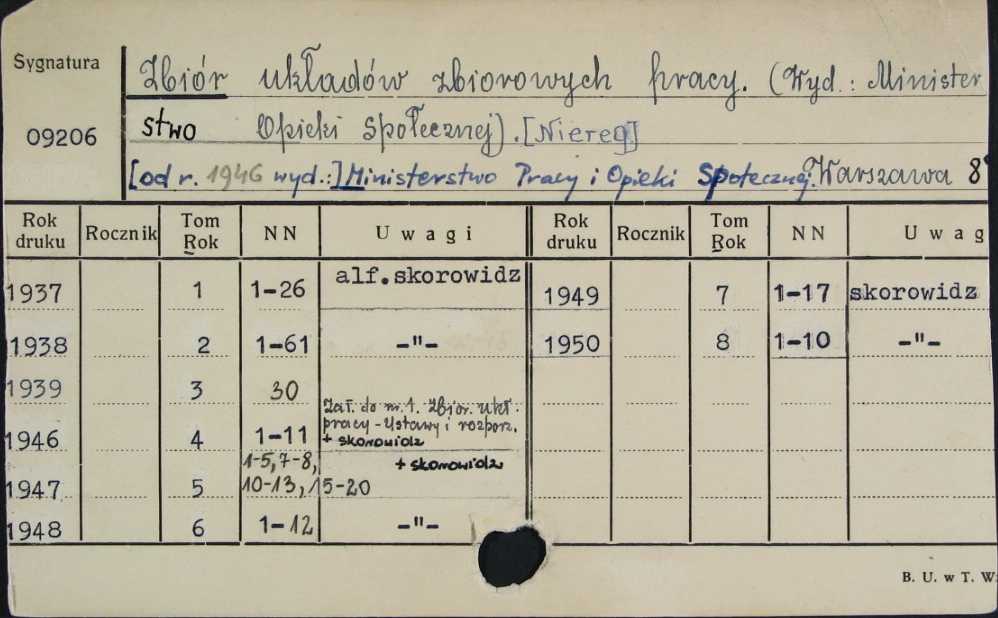 Sygnatura
09206
Zbiór układów zbiorowych pracy. (Wyd.: Minister
stwo Opieki Społecznej). [Niereg]
[od r. 1946 wyd.:] Ministerstwo Pracy i Opieki Społecznej. Warszawa 8°
Rok druku Rocznik Tom Rok NN Uwagi Rok druku Rocznik Tom Rok NN Uwag
1937 1 1-26 alf. skorowidz 1949 7 1-17 skorowidz
1938 2 1-61 -"- 1950 8 1-10 -"-
1939 3 30
1946 4 1-11 Zał. do nr. 1. Zbior. ukł.
pracy - Ustawy i rozporz.
+ skorowidz
1947 5 1-5, 7-8, + skorowidz
10-13, 15-20
1948 6 1-12 -"-
B. U. w T. W: